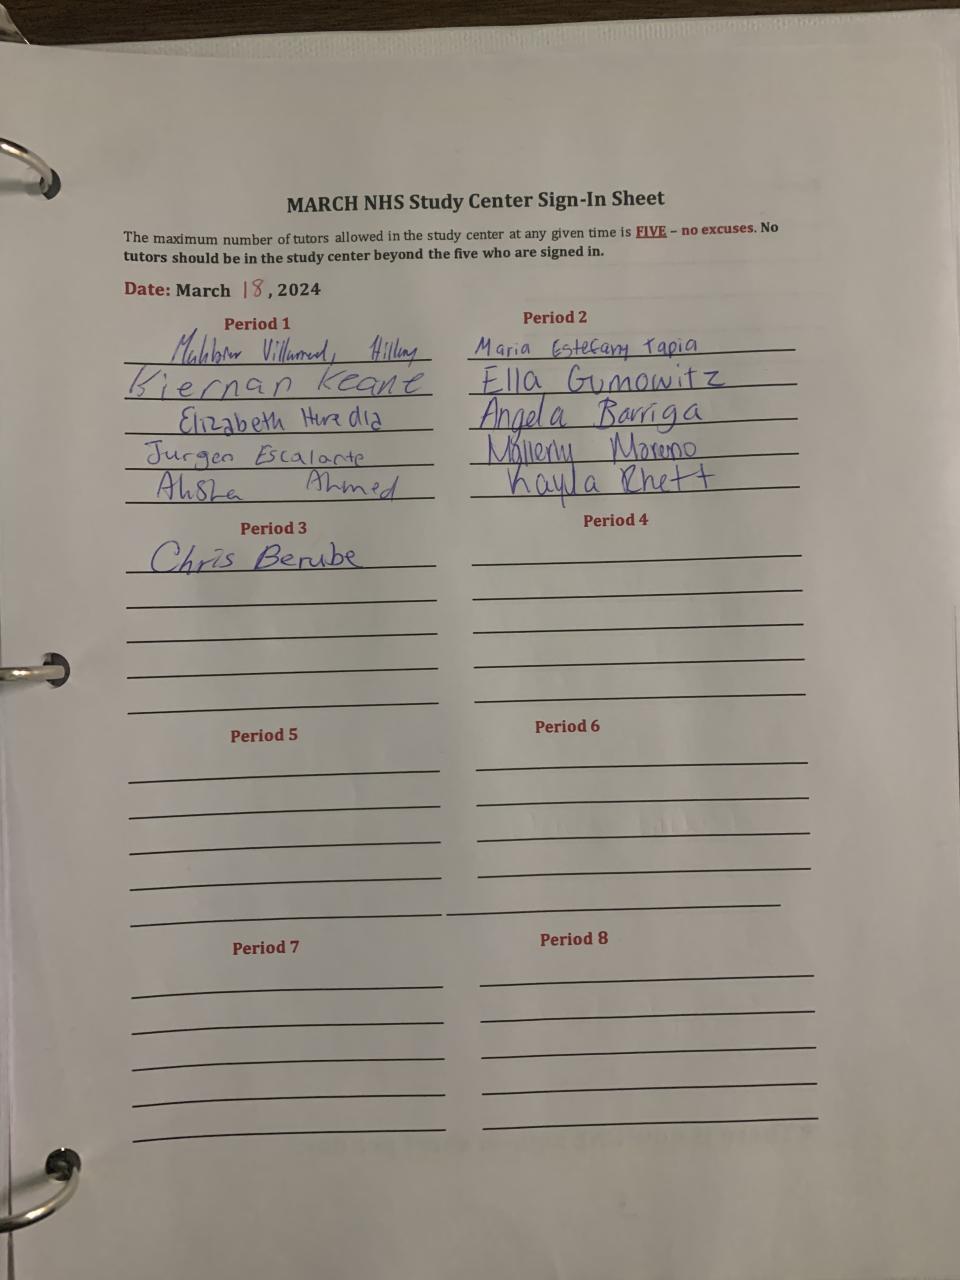 MARCH NHS Study Center Sign-In Sheet
The maximum number of tutors allowed in the study center at any given time is FIVE – no excuses. No
tutors should be in the study center beyond the five who are signed in.
Date: March 18, 2024
Period 1
Hillary
Kiernan Keane
Elizabeth Heredia
Jurgen Escalante
Ahmed
Period 2
Maria Estefany Tapia
Ella Gumowitz
Angela Barriga
Moreno
Kayla Rhett
Period 3
Chris Berube
Period 4
Period 5
Period 6
Period 7
Period 8